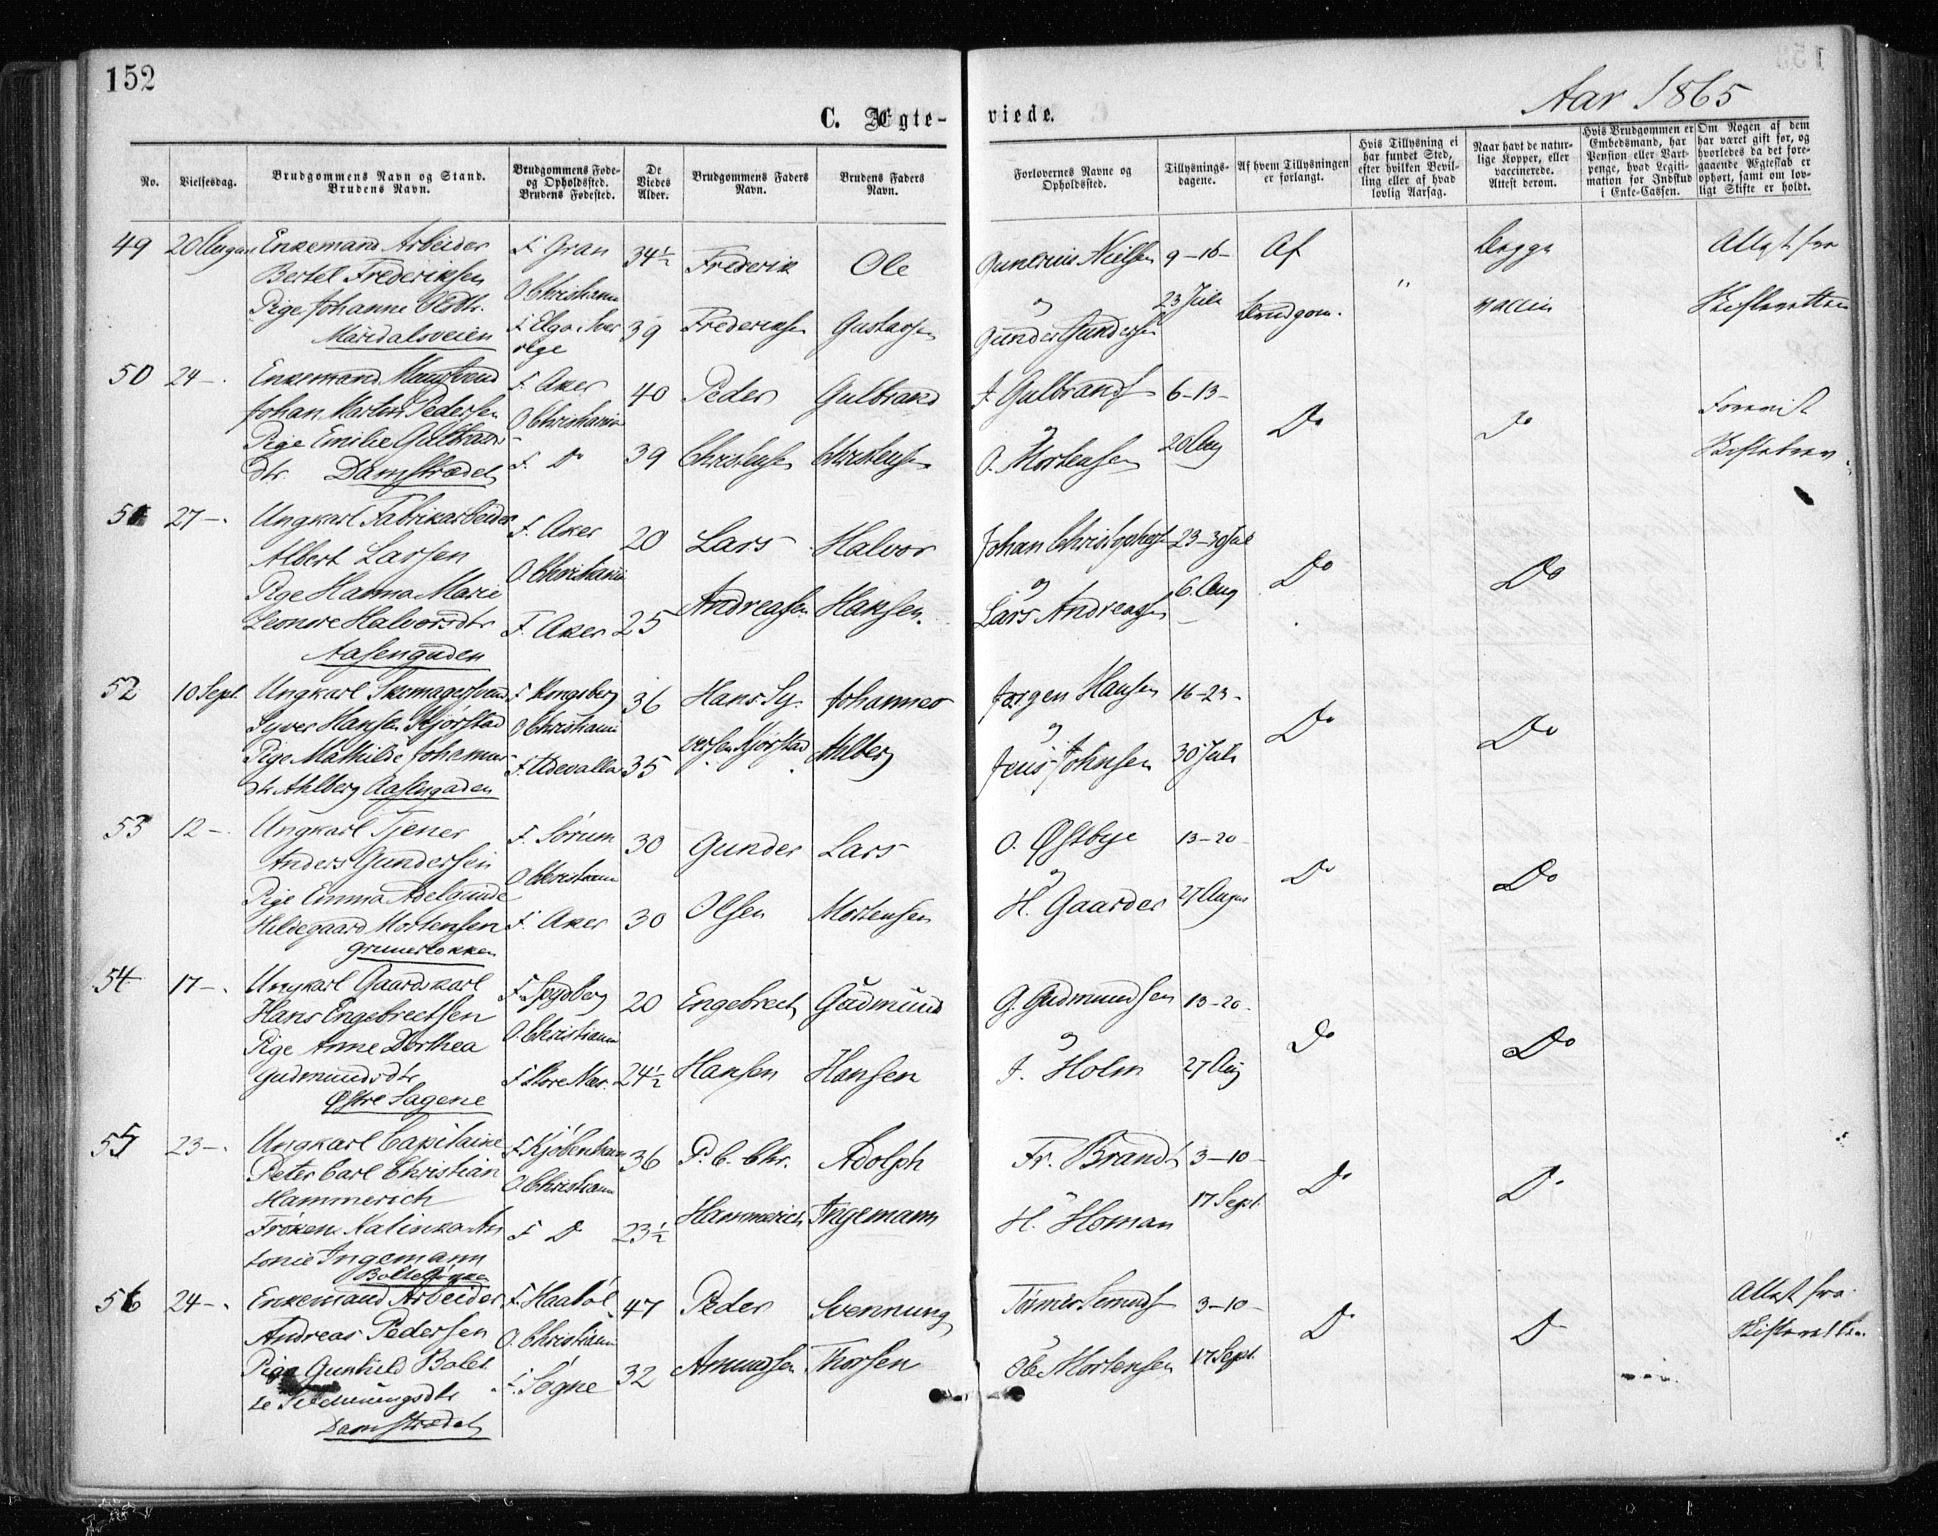 152
Aar 1865
C. Ægte- viede.
No.
Vielsesdag.
Brudgommens Navn og Stand.
Brudens Navn.
Brudgommens Føde- og Opholdssted.
Brudens Fødested.
De Viedes Alder.
Brudgommens Faders Navn.
Brudens Faders Navn.
Forlovernes Navne og Opholdssted.
Tillysnings- dagene.
Af hvem Tillysningen er forlangt.
Hvis Tillysning ei har fundet Sted, efter hvilken Bevil- ling eller af hvad lovlig Aarsag.
Naar havt de natur- lige Kopper, eller vaccinerede. Attest derom.
Hvis Brudgommen er Embedsmand, har Pension eller Vart- penge, hvad Legiti- mation for Indskud i Enke-Cassen.
Om Nogen af dem har været gift før, og hvorledes da det fore- gaaende Ægteskab er ophørt, samt om lov- ligt Skifte er holdt.
49 20 August Enkemand Arbeider F. Gran 34½ Frederik Ole Gunerius Nielsen 9-16- Af Begge Attest fra
Bertel Frederiksen O Christiania
Pige Johanne Olsdtr. F. Elga Sver 39 Frederiksen Gustavsen og 23 Juli Brudgom. vaccin Skifteretten
Maridalsveien rige Gunder Gundersen
50 24-. Enkemand F. Aker 40 Peder Gulbrand J Gulbrands 6-13- Do Do Forevist
Johan Martin Pedersen O Christiania og
Pige Emilie Gulbrands F. Do 39 Christensen Christensen O. Mortensen 20 Aug Skiftebrev
dtr. Damstrædet
51 27-. Ungkarl Fabrikarbeider F. Aker 20 Lars Halvor Johan Christophers 23-30 Jul Do Do
Albert Larsen O. Christiania og
Pige Hanna Marie Andreasen Hansen. Lars Andreasen 6. Aug
Leonore Halvorsdtr F. Aker 25
Aasengaden
52 10 Sept. Ungkarl Skomagersvend F. Kongsberg 36 Hans Sy- Johannes Jørgen Hansen 16-23- Do Do
Syver Hansen Kjørstad O Christiania og
Pige Mathilde Johannes F. Udevalla 35 versen Kjørstad Ahlberg Jens Johnsen 30 Juli
dtr Ahlberg Aasengaden
53 12-. Ungkarl Tjener F. Sørum 30 Gunder Lars O. Østbye 13-20- Do Do
Anders Gundersen O Christiania og
Pige Emma Adelgunde F. Aker 30 Olsen Mortensen H. Gaarder 27 August
Hildegaard Mortensen
Grunerløkken
54 17-. Ungkarl Gaardskarl F. Spydberg 20 Engebrect Gudmund G. Gudmundsen 13-20. Do Do
Hans Engebrectsen O. Christiania og
Pige Anne Dorthea F. Store Næs. 24½ Hansen Hansen J. Holm 27 Aug
Gudmundsdtr
Østre Sagene
55 23-. Ungkarl Capitaine F. Kjøbenhavn 36 P. C. Chr. Adolph Fr. Brandt 3-10- Do Do
Peter Carl Christian O. Christiania
Hammerich og 17 Sept.
Frøken Kalinka An F D 23½ Hammerich Ingemann H. Homan
tonie Ingemann
Bolteløkken
56 24-. Enkemand Arbeider F. Haabøl 47 Peder Svennung 3-10- Do D Attest fra
Andreas Pedersen O. Christiania Skifteretten
Pige Gunhild Bolet F. Søgne 32 Amundsen Thorsen Ole Mortensen 17 Sept.
te Svennungsdtr
Damstrædet